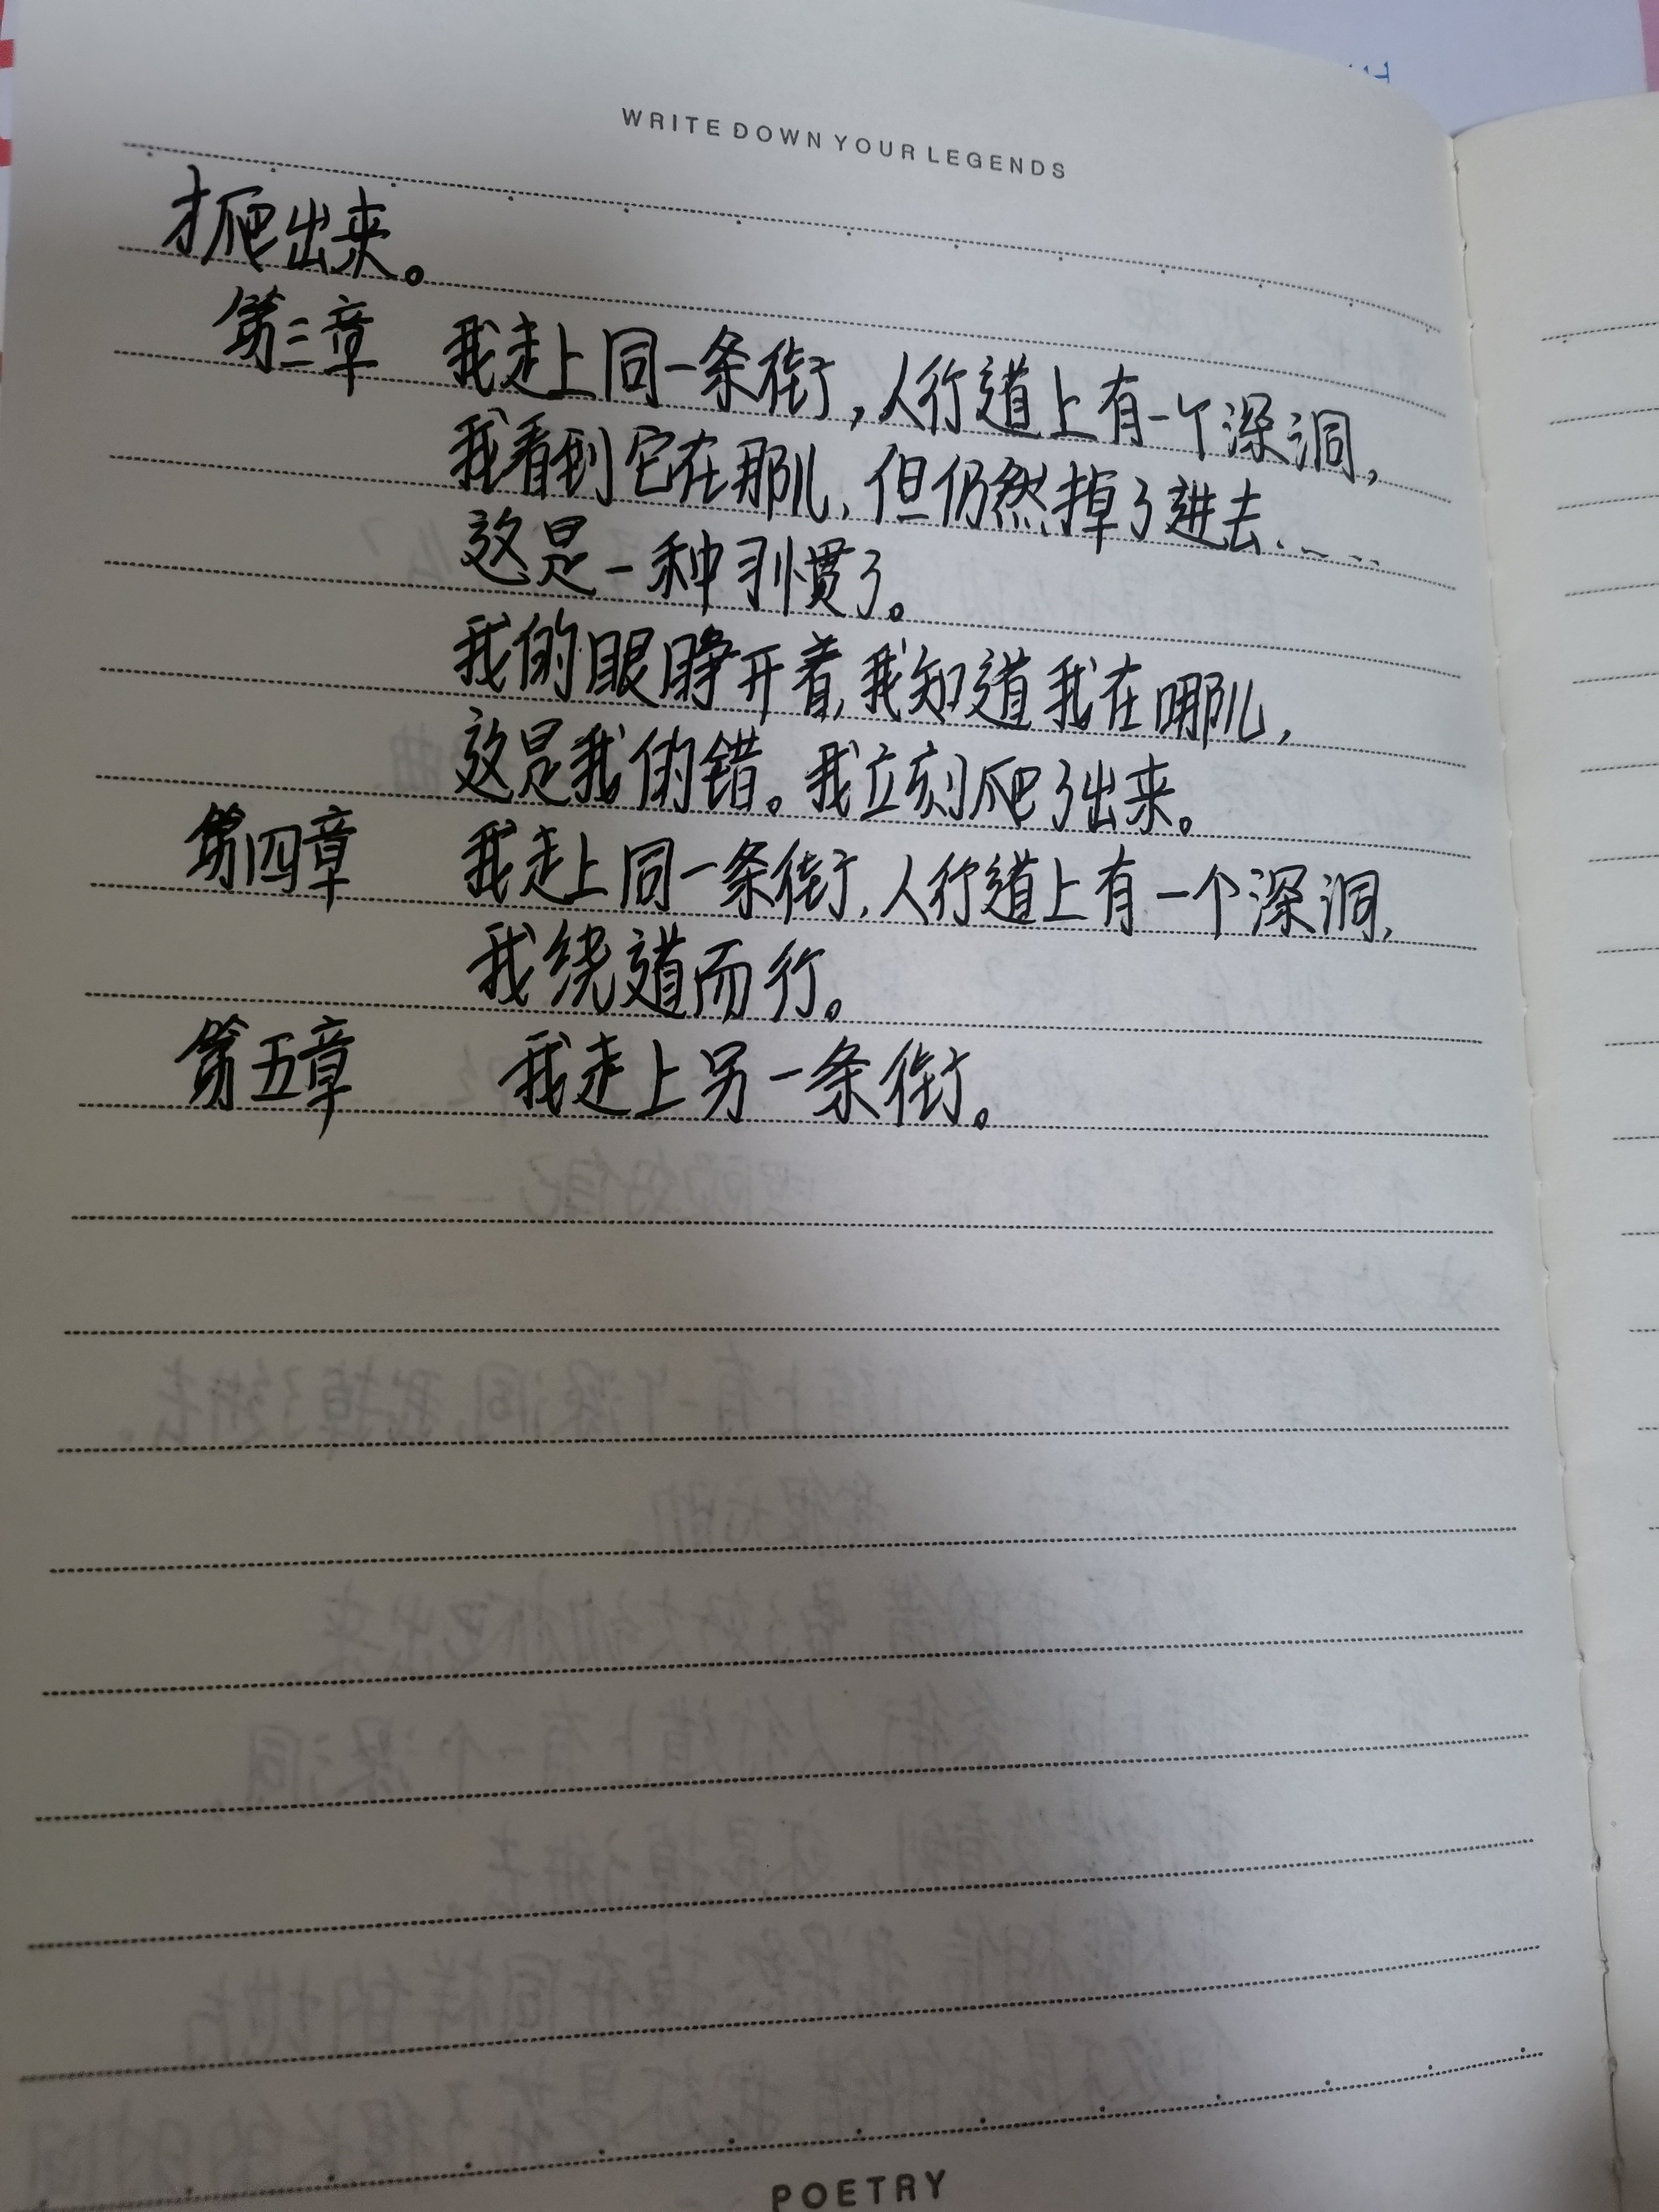 WRITE DOWN YOUR LEGENDS
才爬出来。
第三章 我走上同一条街,人行道上有一个深洞,
我看到它在那儿,但仍然掉了进去……
这是一种习惯了。
我的眼睁开着,我知道我在哪儿,
这是我的错。我立刻爬了出来。
第四章 我走上同一条街,人行道上有一个深洞,
我绕道而行。
第五章 我走上另一条街。
POETRY